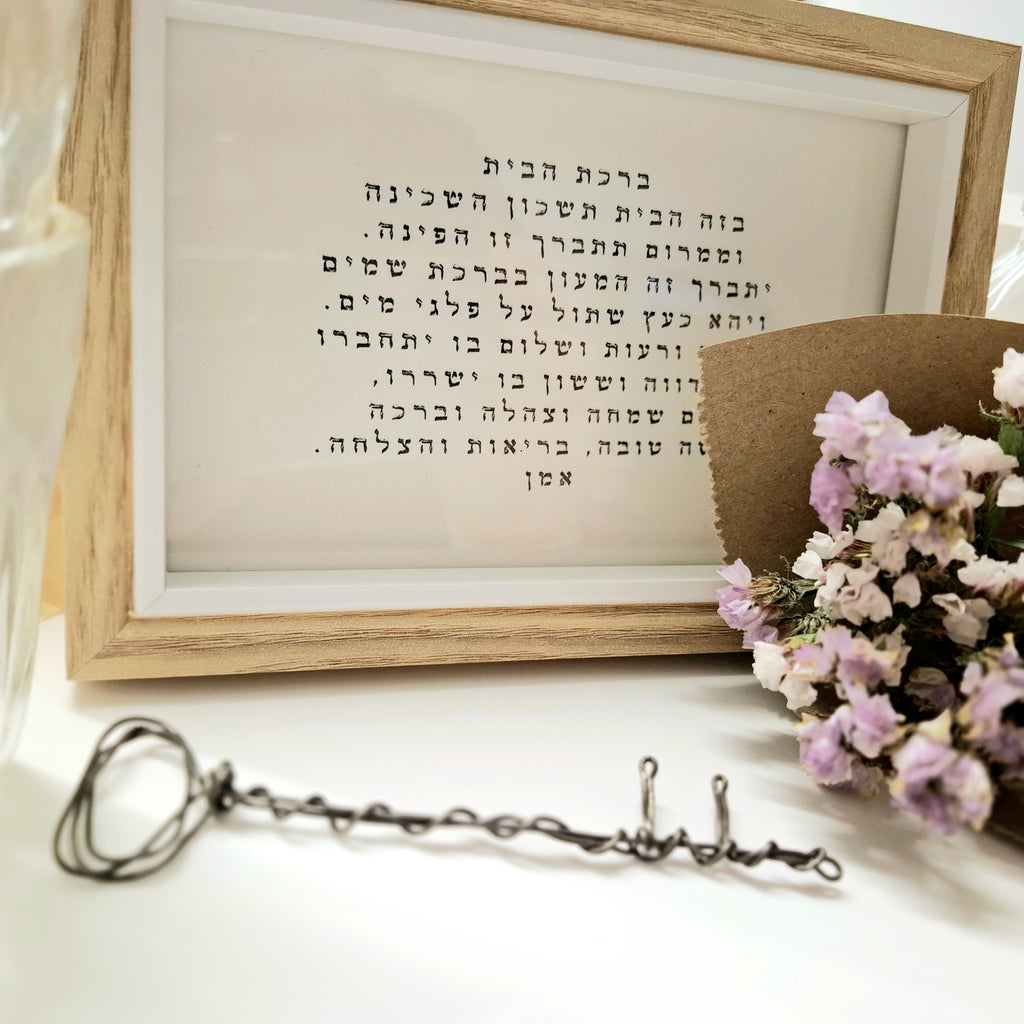 ברכת הבית
בזה הבית תשכון השכינה
וממרום תתברך זו הפינה.
יתברך זה המעון בברכת שמים
ויהא כעץ שתול על פלגי מים.
ורעות ושלום בו יתחברו
וששון בו ישררו,
שמחה וצהלה וברכה
טובה, בריאות והצלחה.
אמן